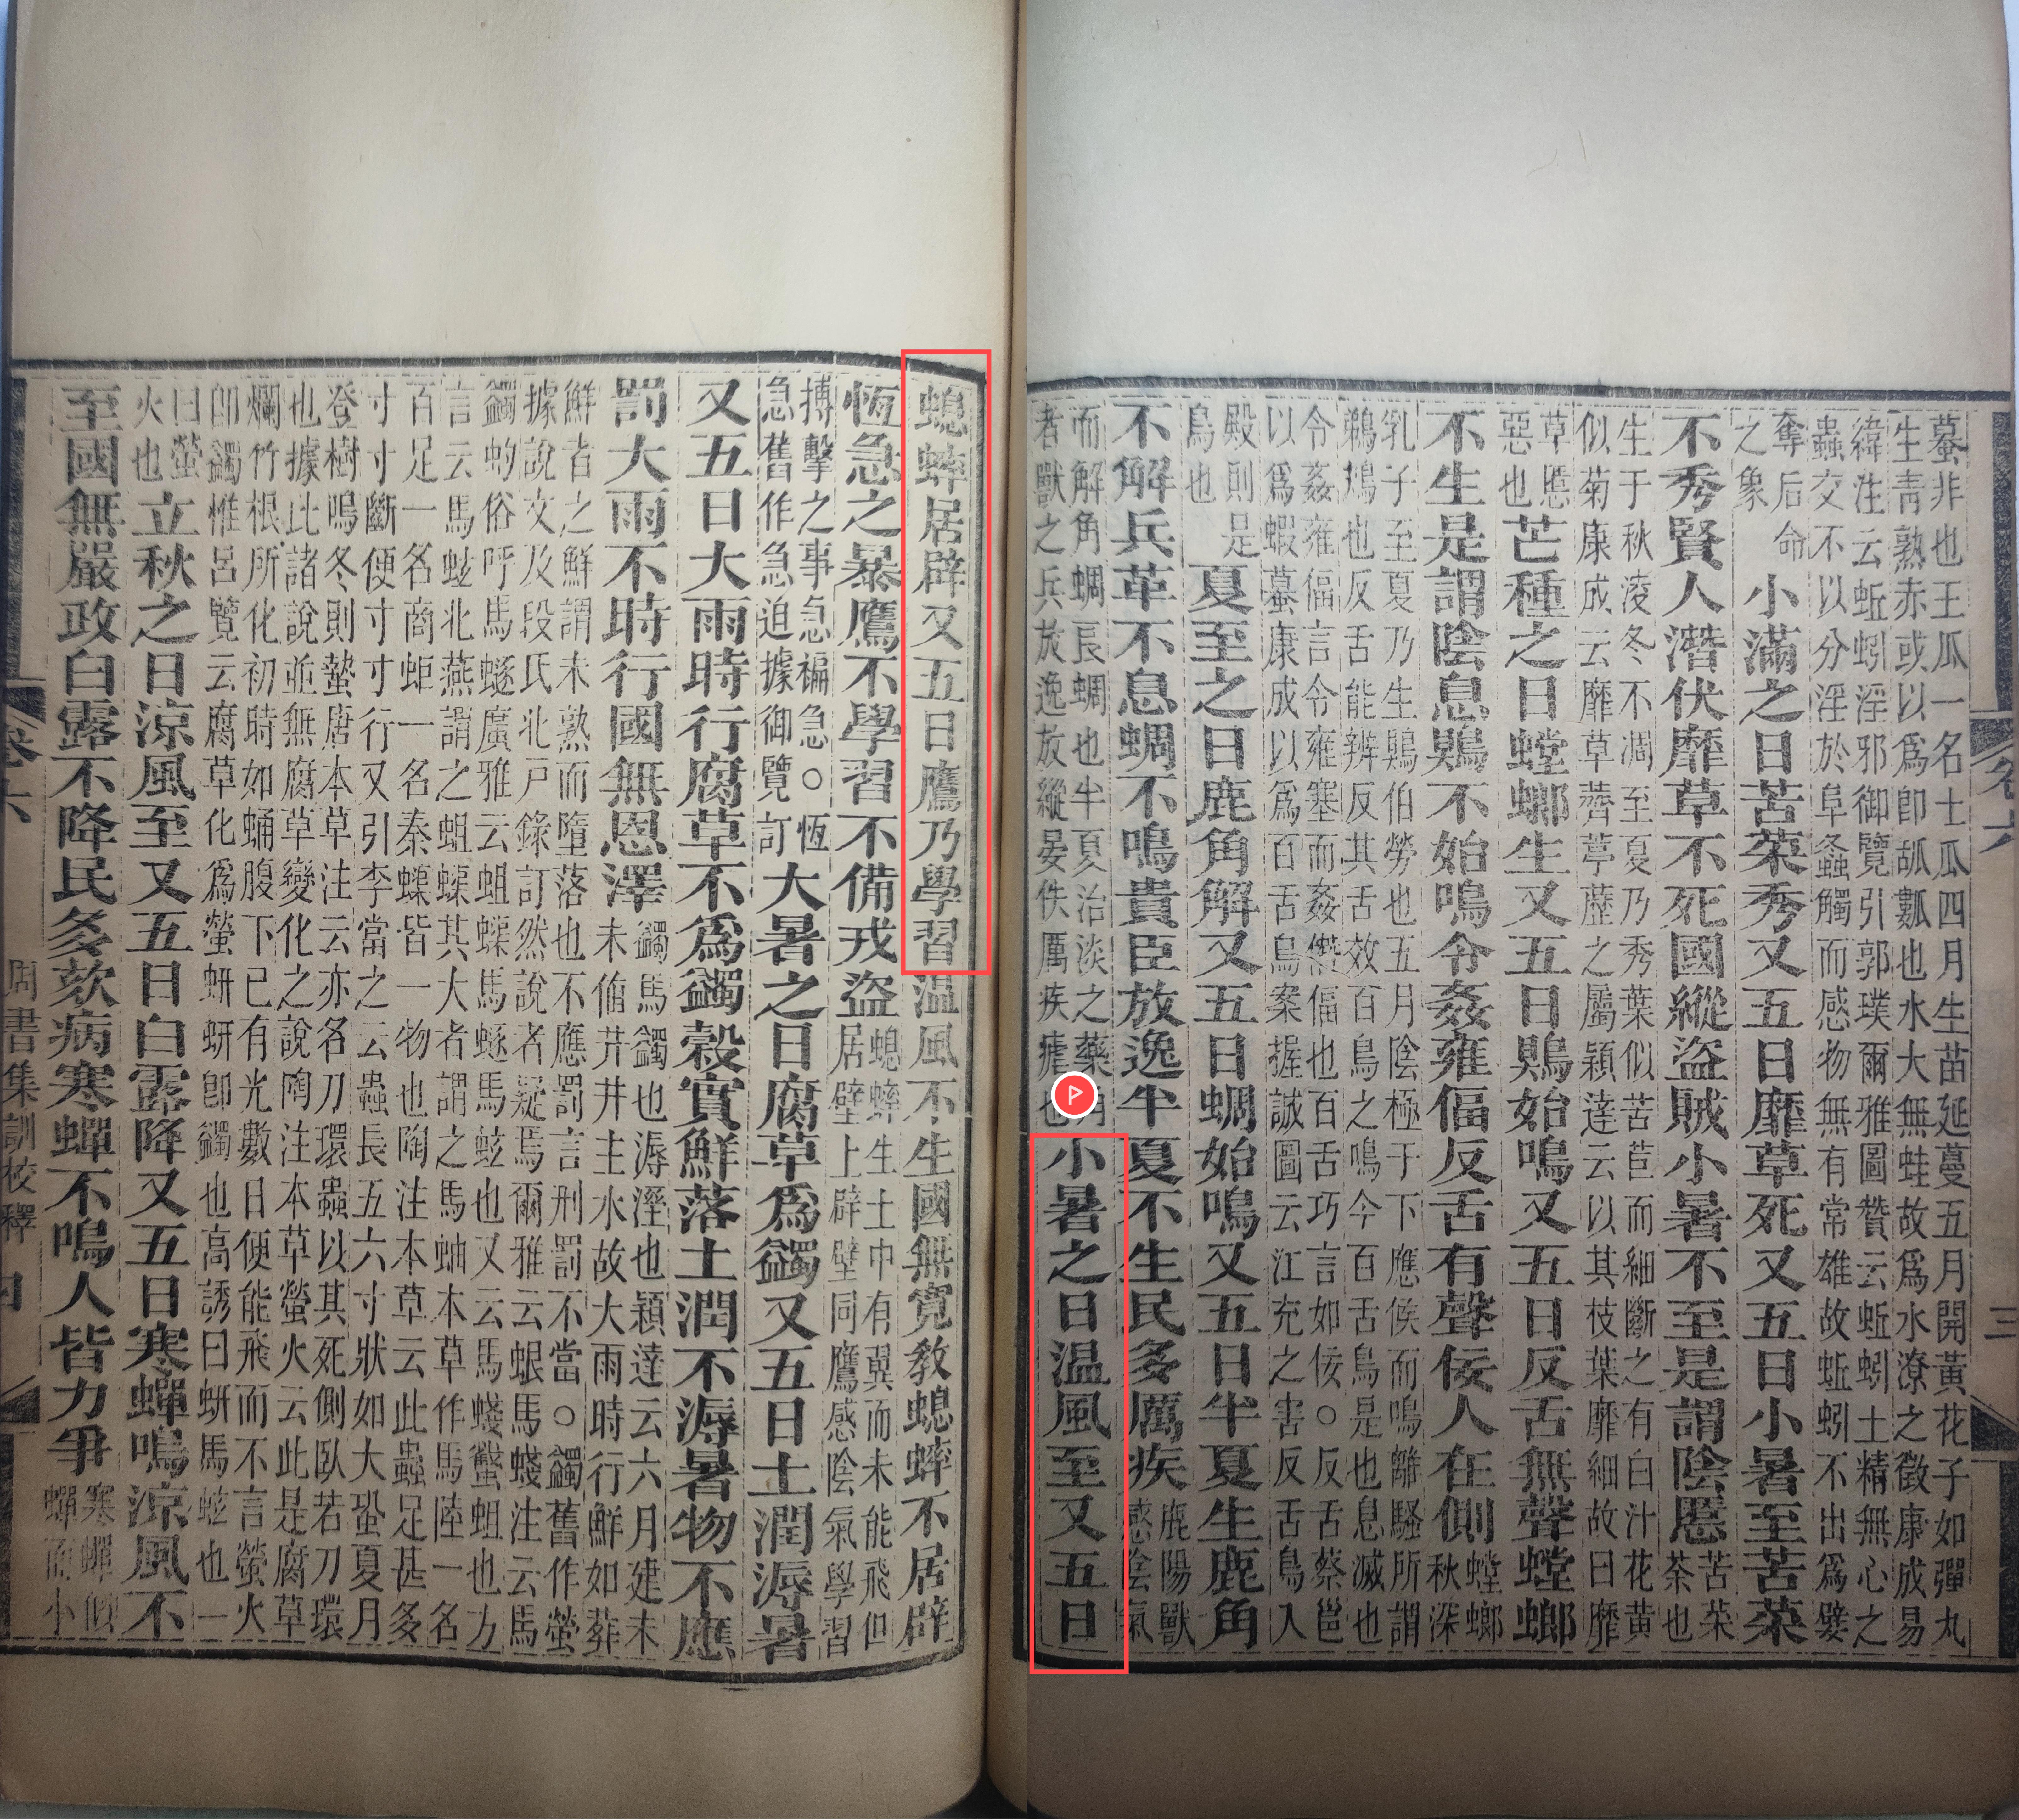 蟇非也王瓜一名土瓜四月生苗延蔓五月開黃花子如彈丸
生青熟赤或以爲卽瓤也水大無蛙故爲水潦之徵康成易
緯注云蚯蚓淫邪御覽引郭璞爾雅圖贊云蚯蚓土精無心之
蟲交不以分淫於阜螽觸而感物無有常雄故蚯蚓不出爲嬖
奪后命
之象
小滿之日苦菜秀又五日靡草死又五日小暑至苦菜
不秀賢人潛伏靡草不死國縱盜賊小暑不至是謂陰慝
苦菜
荼也
生于秋淩冬不凋至夏乃秀葉似苦苣而細斷之有白汁花黃
似菊康成云靡草薺葶藶之屬穎達云以其枝葉靡細故曰靡
草慝
惡也
芒種之日螳螂生又五日鵙始鳴又五日反舌無聲螳螂
不生是謂陰息鵙不始鳴令姦雍偪反舌有聲佞人在側
螳螂
秋深
乳子至夏乃生鵙伯勞也五月陰極于下應候而鳴離騷所謂
鵜鴂也反舌能辨反其舌效百鳥之鳴今百舌鳥是也息滅也
令姦雍偪言令雍塞而姦僭偪也百舌巧言如佞○反舌蔡邕
以爲蝦蟇康成以爲百舌鳥案握誠圖云江充之害反舌鳥入
殿則是
鳥也
夏至之日鹿角解又五日蜩始鳴又五日半夏生鹿角
不解兵革不息蜩不鳴貴臣放逸半夏不生民多厲疾
鹿陽獸
感陰氣
而解角蜩良蜩也半夏治淡之藥
者獸之兵放逸放縱晏佚厲疾瘧也
小暑之日温風至又五日
卷六
三
蟋蟀居辟又五日鷹乃學習温風不生國無寬教蟋蟀不居辟
恆急之暴鷹不學習不備戎盜
蟋蟀生土中有翼而未能飛但
居壁上辟壁同鷹感陰氣學習
搏擊之事急褊急○恆
急舊作急迫據御覽訂
大暑之日腐草爲蠲又五日土潤溽暑
又五日大雨時行腐草不爲蠲穀實鮮落土潤不溽暑物不應
罰大雨不時行國無恩澤
蠲馬蠲也溽溼也穎達云六月建未
未値井井主水故大雨時行鮮如葬
鮮者之鮮謂未熟而墮落也不應罰言刑罰不當○蠲舊作螢
據說文及段氏北戸錄訂然說者疑馬爾雅云蛝馬蝬注云馬
蠲蚐俗呼馬蝬廣雅云蛆蟝馬蝬馬蚿也又云馬蝬蠽蛆也方
言云馬蚿北燕謂之蛆蟝其大者謂之馬蚰本草作馬陸一名
百足一名商蚷一名秦蟝皆一物也陶注本草云此蟲足甚多
寸寸斷便寸寸行又引李當之云蟲長五六寸狀如大蛩夏月
登樹鳴冬則蟄唐本草注云亦名刀環蟲以其死側臥若刀環
也據此諸說並無腐草變化之說陶注本草螢火云此是腐草
爛竹根所化初時如蛹腹下已有光數日便能飛而不言螢火
卽蠲惟呂覽云腐草化爲螢蚈蚈卽蠲也高誘曰蚈馬蚿也一
曰螢
火也
立秋之日涼風至又五日白露降又五日寒蟬鳴涼風不
至國無嚴政白露不降民多欬病寒蟬不鳴人皆力爭
寒蟬似
蟬而小
卷六
周書集訓校釋
四